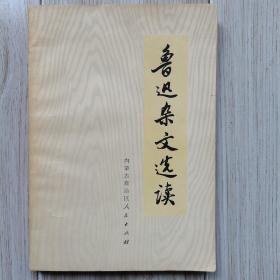 鲁迅杂文选读
内蒙古自治区人民出版社